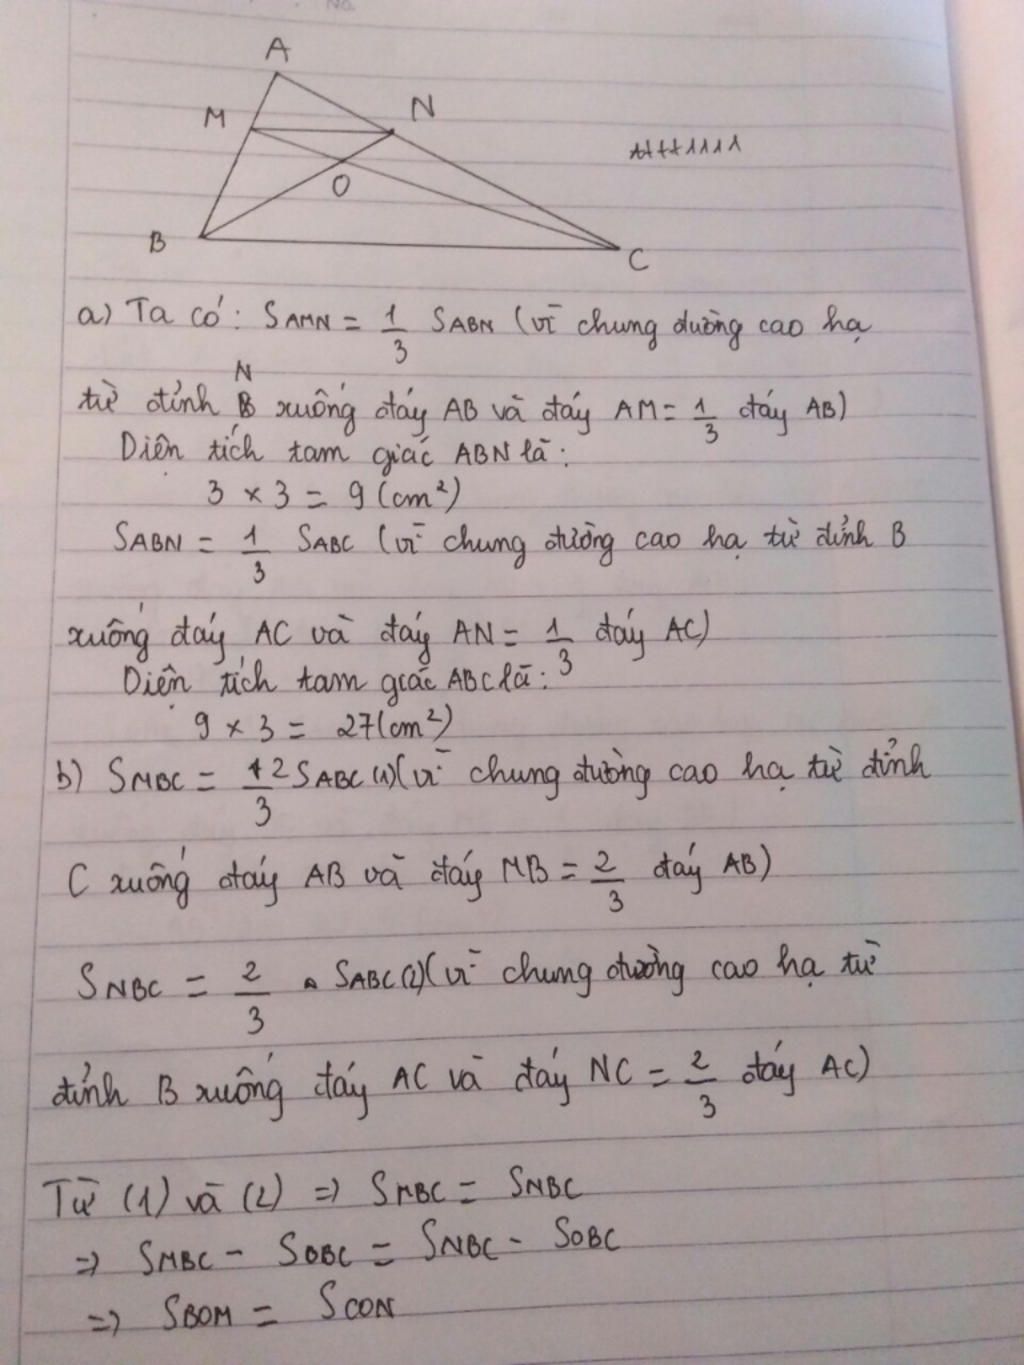 A
M
N
O
B
C
a) Ta có: SAMN = 1/3 SABN (vì chung đường cao hạ
N
từ đỉnh B xuống đáy AB và đáy AM = 1/3 đáy AB)
Diện tích tam giác ABN là:
3 × 3 = 9 (cm²)
SABN = 1/3 SABC (vì chung đường cao hạ từ đỉnh B
xuống đáy AC và đáy AN = 1/3 đáy AC)
Diện tích tam giác ABC là:
9 × 3 = 27 (cm²)
b) SMBC = 2/3 SABC (1) (vì chung đường cao hạ từ đỉnh
C xuống đáy AB và đáy MB = 2/3 đáy AB)
SNBC = 2/3 SABC (2) (vì chung đường cao hạ từ
đỉnh B xuống đáy AC và đáy NC = 2/3 đáy AC)
Từ (1) và (2) => SMBC = SNBC
=> SMBC - SOBC = SNBC - SOBC
=> SBOM = SCON